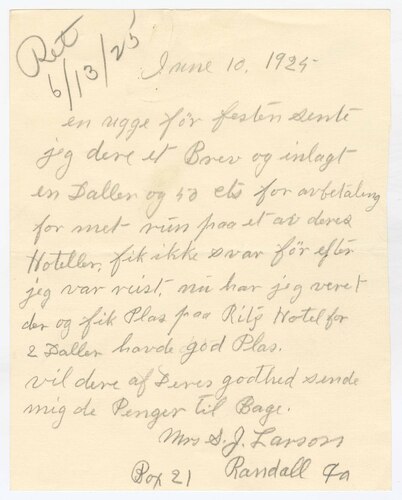 Ret
6/13/25
June 10, 1925
en ugge før festen sente
jeg dere et Brev og inlagt
en Daller og 50 cts for avbetaling
for met rum paa et av deres
Hoteller, fik ikke svar før efter
jeg var reist, nu har jeg veret
der og fik Plas paa Rits Hotel for
2 Daller havde god Plas.
vil dere af Deres godhed sende
mig de Penger til Bage.
Mrs S. J. Larson
Box 21 Randall Ia